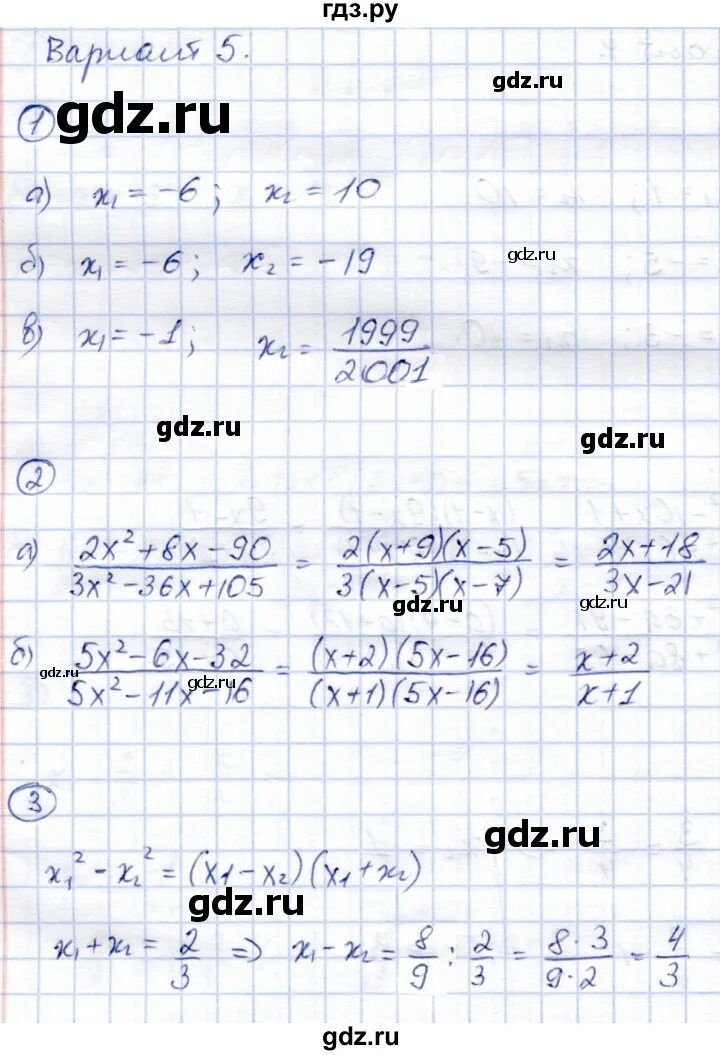 гдз.ру
Вариант 5.
gdz.ru
1 gdz.ru
а) x₁ = -6; x₂ = 10
б) x₁ = -6; x₂ = -19 gdz.ru
в) x₁ = -1; x₂ = 1999/2001
gdz.ru
gdz.ru
2
а) (2x² + 8x - 90)/(3x² - 36x + 105) = 2(x+9)(x-5)/3(x-5)(x-7) = (2x+18)/(3x-21)
gdz.ru gdz.ru
б) (5x² - 6x - 32)/(5x² - 11x - 16) = (x+2)(5x-16)/(x+1)(5x-16) = (x+2)/(x+1)
gdz.ru gdz.ru
3
gdz.ru
x₁² - x₂² = (x₁ - x₂)(x₁ + x₂)
gdz.ru
x₁ + x₂ = 2/3 => x₁ - x₂ = 8/9 : 2/3 = 8·3/9·2 = 4/3
gdz.ru